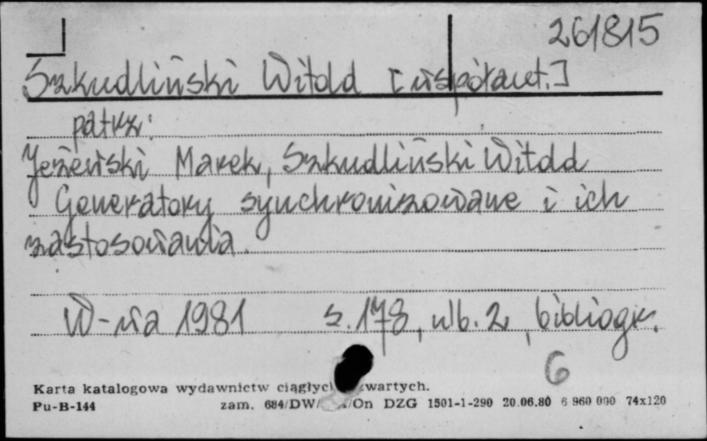 261815
Szkudliński Witold [współaut.]
patrz:
Jeżewski Marek, Szkudliński Witold
Generatory synchronizowane i ich
zastosowania.
W-wa 1981 s. 178, nlb. 2, bibliogr.
6
Karta katalogowa wydawnictw zwartych.
Pu-B-144 zam. 684/DW/ /On DZG 1501-1-290 20.06.80 6 960 000 74x120